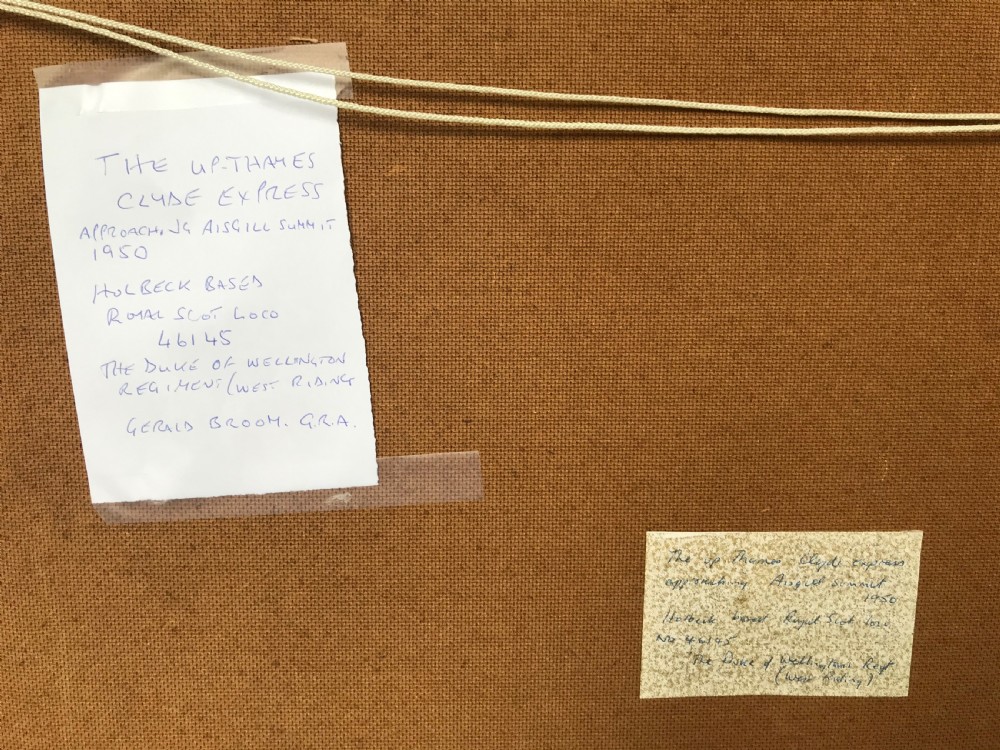 THE UP-THAMES
CLYDE EXPRESS
APPROACHING AISGILL SUMMIT
1950
HOLBECK BASED
ROYAL SCOT LOCO
46145
THE DUKE OF WELLINGTON
REGIMENT/(WEST RIDING
GERALD BROOM. G.R.A.
The up Thames Clyde Express
approaching Aisgill summit
1950
Holbeck based Royal Scot loco
No 46145
The Duke of Wellingtons Regt
(West Riding)